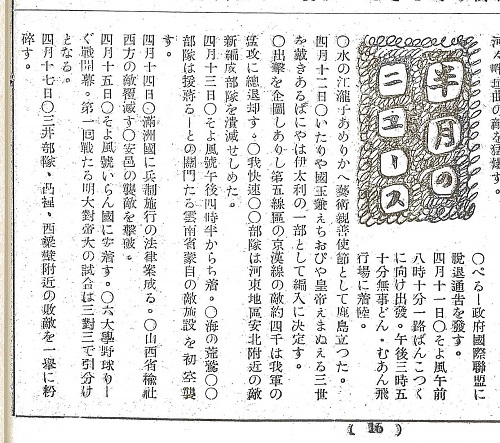 の敵を猛爆す。
半月の
ニユース
〇ぺるー政府國際聯盟に
脫退通告を發す。
四月十一日〇そよ風午前
八時十分一路ばんこつく
に向け出發。午後三時五
十分無事どん・むあん飛
行場に着陸。
〇水の江瀧子あめりかへ藝術親善使節として鹿島立つた。
四月十二日〇いたりや國王兼えちおぴや皇帝えまぬえる三世
を戴きあるばにやは伊太利の一部として編入に決定す。
〇出擊を企圖しありし第五線區の京漢線の敵約四千は我軍の
猛攻に總退却す。〇我快速〇〇部隊は河東地區安北附近の敵
新編成部隊を潰滅せしめた。
四月十三日〇そよ風號午後四時半からち着。〇海の荒鷲〇〇
部隊は援蔣るーとの關門たる雲南省蒙自の敵施設を初空襲
す。
四月十四日〇滿洲國に兵制施行の法律案成る。〇山西省楡社
西方の敵殲滅す〇安邑の襲敵を擊破。
四月十五日〇そよ風號いらん國に安着す。〇六大學野球りー
ぐ戰開幕。第一回戰たる明大對帝大の試合は三對三で引分け
となる。
四月十七日〇三井部隊、凸裡、西梁壁附近の敗敵を一擧に粉
碎す。
( 16 )